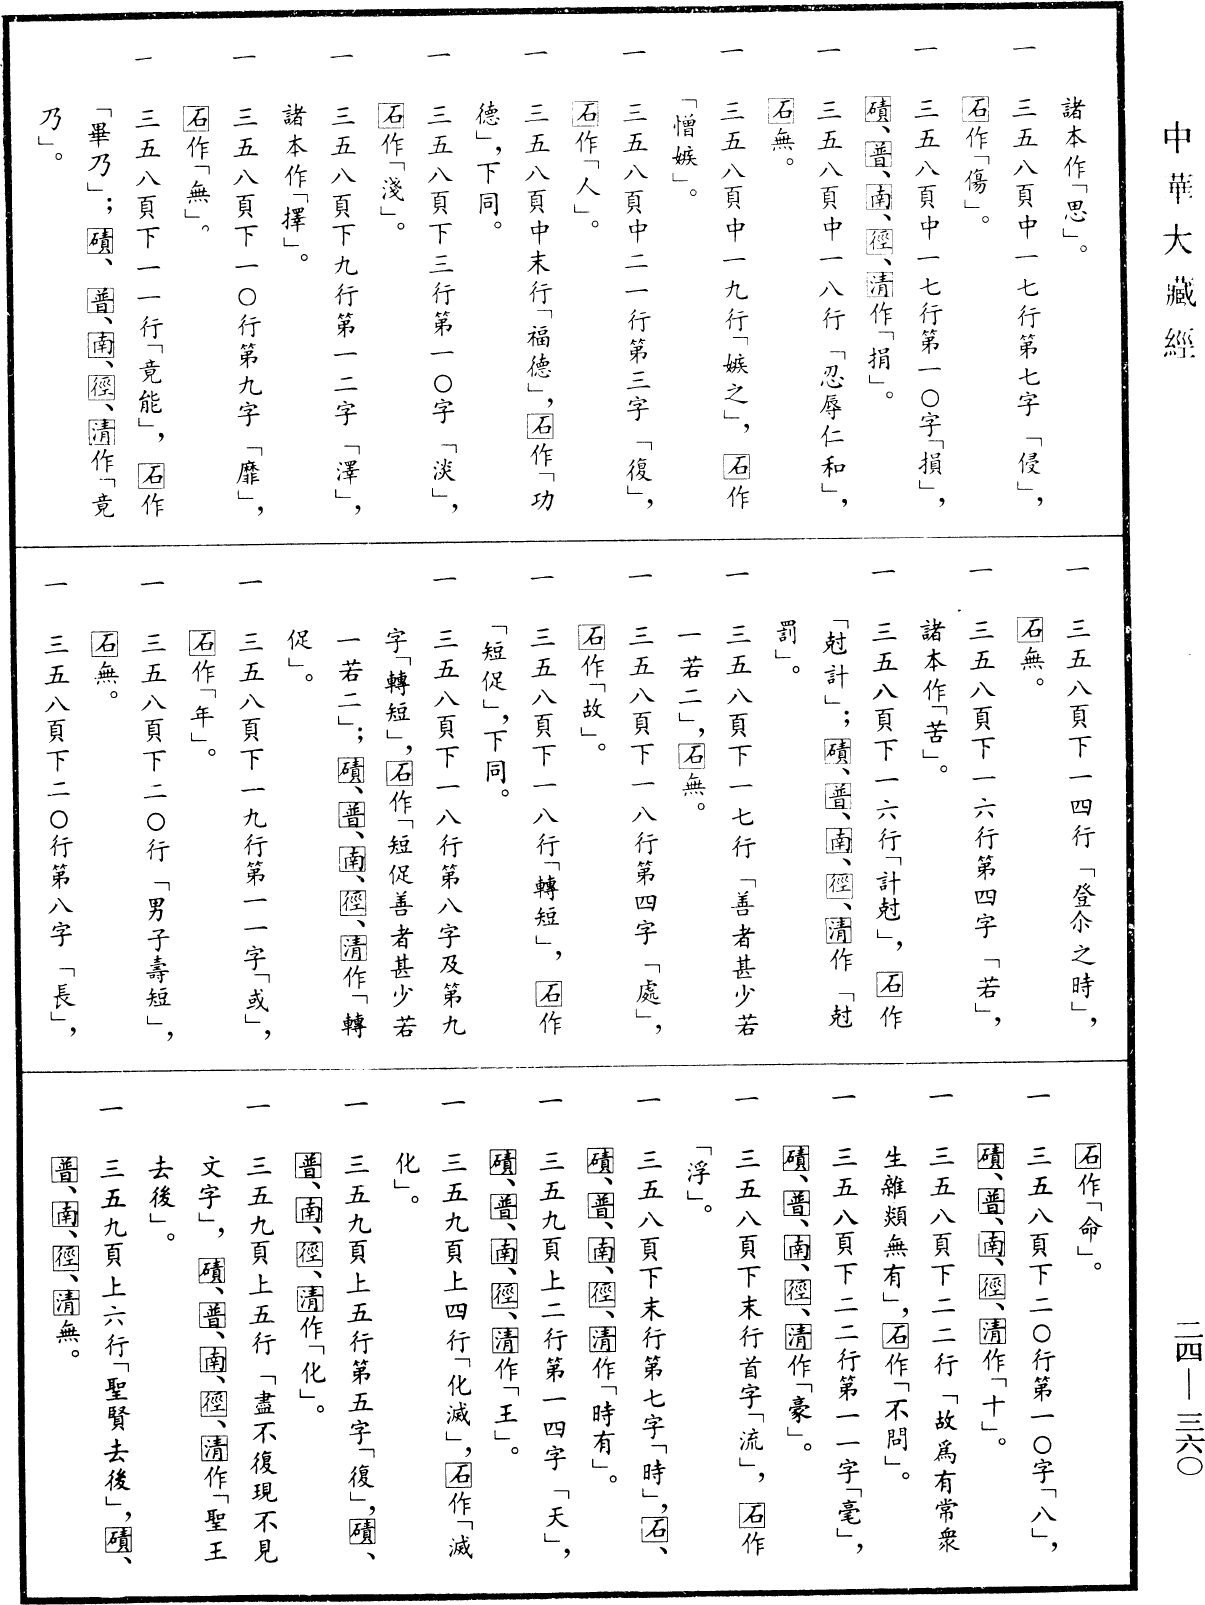 中華大藏經
諸本作「思」。
一 三五八頁中一七行第七字「侵」，
石作「傷」。
一 三五八頁中一七行第一〇字「損」，
磧、普、南、徑、清作「捐」。
一 三五八頁中一八行「忍辱仁和」，
石無。
一 三五八頁中一九行「嫉之」，石作
「憎嫉」。
一 三五八頁中二一行第三字「復」，
石作「人」。
一 三五八頁中末行「福德」，石作「功
德」，下同。
一 三五八頁下三行第一〇字「淡」，
石作「淺」。
一 三五八頁下九行第一二字「澤」，
諸本作「擇」。
一 三五八頁下一〇行第九字「靡」，
石作「無」。
一 三五八頁下一一行「竟能」，石作
「畢乃」；磧、普、南、徑、清作「竟
乃」。
一 三五八頁下一四行「登尒之時」，
石無。
一 三五八頁下一六行第四字「若」，
諸本作「苦」。
一 三五八頁下一六行「計尅」，石作
「尅計」；磧、普、南、徑、清作「尅
罰」。
一 三五八頁下一七行「善者甚少若
一若二」，石無。
一 三五八頁下一八行第四字「處」，
石作「故」。
一 三五八頁下一八行「轉短」，石作
「短促」，下同。
一 三五八頁下一八行第八字及第九
字「轉短」，石作「短促善者甚少若
一若二」；磧、普、南、徑、清作「轉
促」。
一 三五八頁下一九行第一一字「或」，
石作「年」。
一 三五八頁下二〇行「男子壽短」，
石無。
一 三五八頁下二〇行第八字「長」，
石作「命」。
一 三五八頁下二〇行第一〇字「八」，
磧、普、南、徑、清作「十」。
一 三五八頁下二二行「故爲有常衆
生雜類無有」，石作「不問」。
一 三五八頁下二二行第一一字「毫」，
磧、普、南、徑、清作「豪」。
一 三五八頁下末行首字「流」，石作
「浮」。
一 三五八頁下末行第七字「時」，石、
磧、普、南、徑、清作「時有」。
一 三五九頁上二行第一四字「天」，
磧、普、南、徑、清作「王」。
一 三五九頁上四行「化滅」，石作「滅
化」。
一 三五九頁上五行第五字「復」，磧、
普、南、徑、清作「化」。
一 三五九頁上五行「盡不復現不見
文字」，磧、普、南、徑、清作「聖王
去後」。
一 三五九頁上六行「聖賢去後」，磧、
普、南、徑、清無。
二四—三六〇